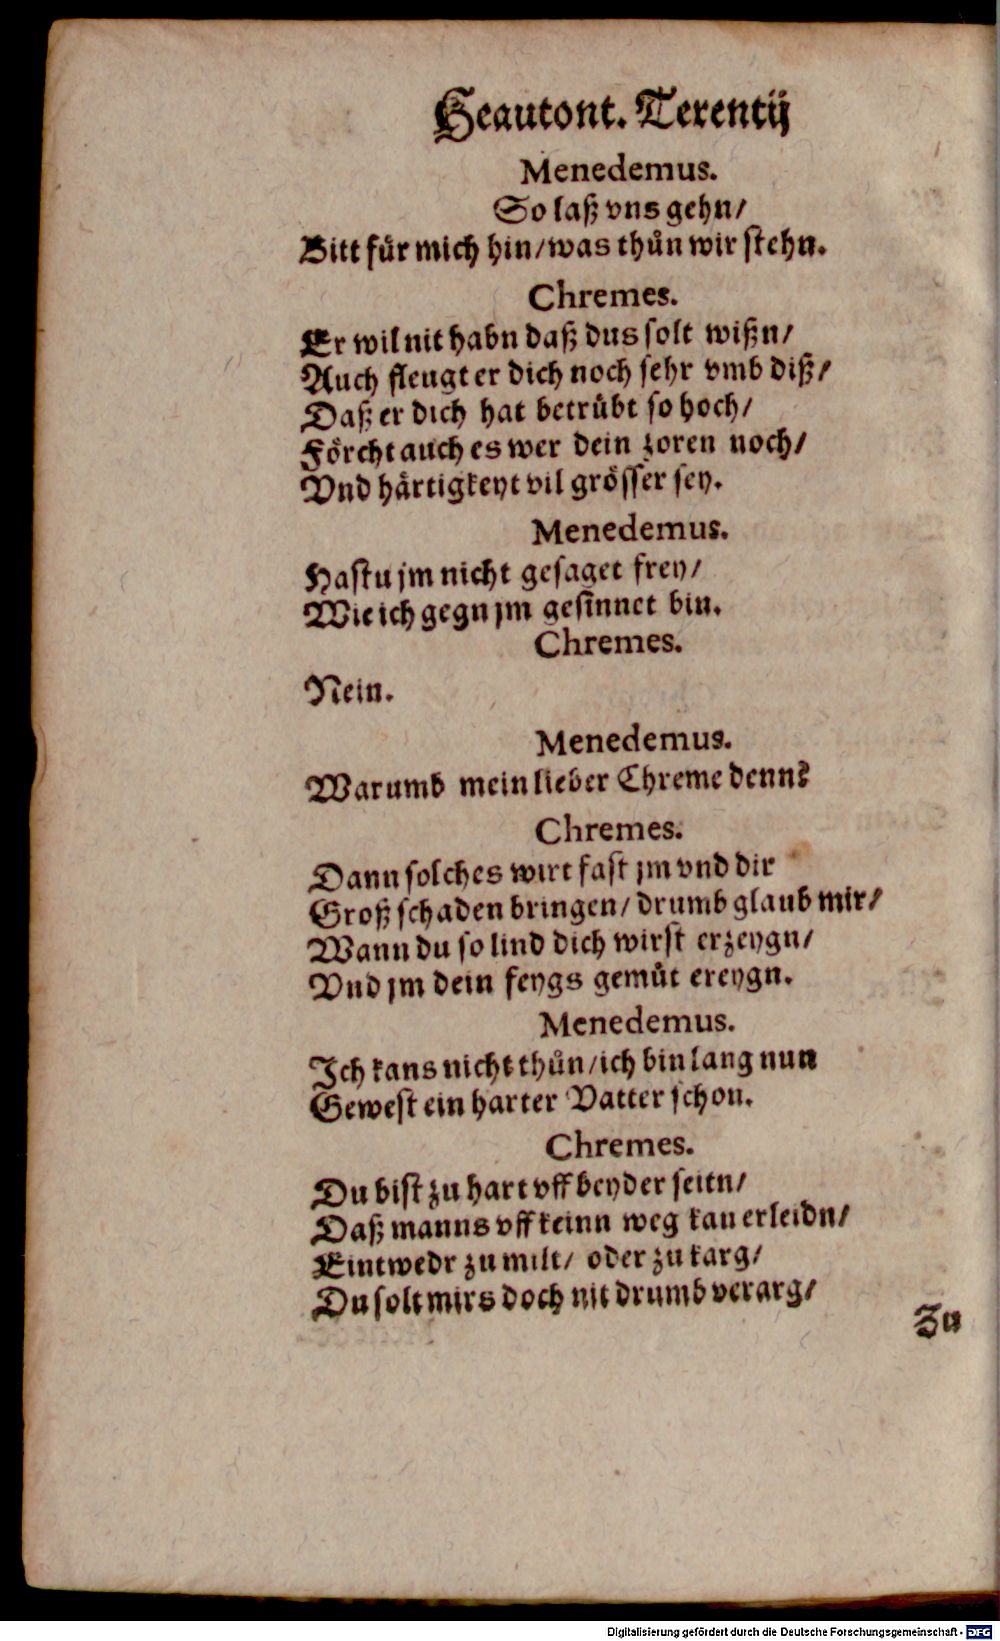 Heautont. Terentij
Menedemus.
So laß vns gehn/
Bitt für mich hin/was thůn wir stehn.
Chremes.
Er wil nit habn daß dus solt wißn/
Auch fleugt er dich noch sehr vmb diß/
Daß er dich hat betrübt so hoch/
Förcht auch es wer dein zoren noch/
Vnd härtigkeyt vil grösser sey.
Menedemus.
Hastu jm nicht gesaget frey/
Wie ich gegn jm gesinnet bin.
Chremes.
Nein.
Menedemus.
Warumb mein lieber Chreme denn?
Chremes.
Dann solches wirt fast jm vnd dir
Groß schaden bringen/ drumb glaub mir/
Wann du so lind dich wirst erzeygn/
Vnd jm dein feygs gemůt ereygn.
Menedemus.
Ich kans nicht thůn/ich bin lang nun
Gewest ein harter Vatter schon.
Chremes.
Du bist zu hart vff beyder seitn/
Daß manns vff keinn weg kan erleidn/
Eintwedr zu milt/ oder zu karg/
Du solt mirs doch nit drumb verarg/
Zu
Digitalisierung gefördert durch die Deutsche Forschungsgemeinschaft - DFG